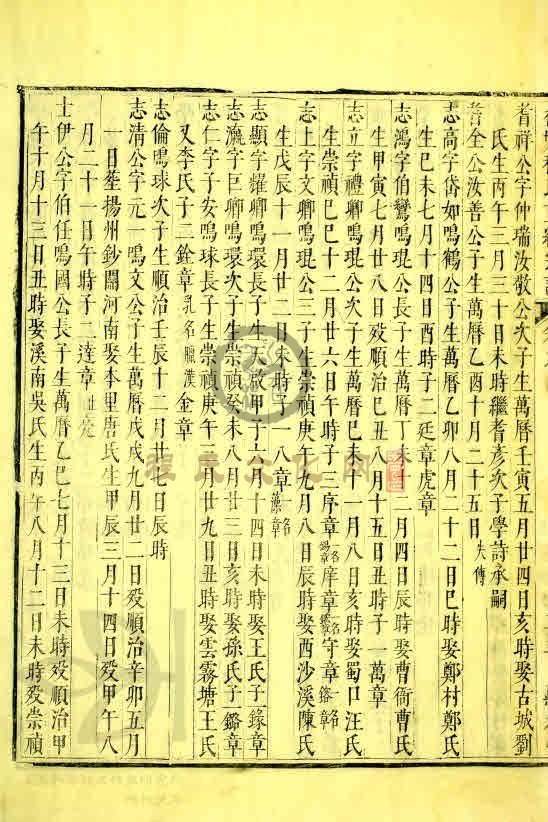 耆祥公字仲瑞汝敬公次子生萬曆壬寅五月廿四日亥時娶古城劉
氏生丙午三月三十日未時繼耆彥次子學詩承嗣
耆全公汝善公子生萬曆乙酉十月二十五日失傳
志高字岱如鳴鶴公子生萬曆乙卯八月二十二日巳時娶鄭村鄭氏
生己未七月十四日酉時子二廷章虎章
志鴻字伯鸞鳴琨公長子生萬曆丁未十二月四日辰時娶曹衙曹氏
生甲寅七月廿八日歿順治己丑八月十五日丑時子一萬章
志立字禮卿鳴琨公次子生萬曆己未十一月八日亥時娶蜀口汪氏
生崇禎己巳十二月廿六日午時子三序章一名庠章一名守章一名
志上字文卿鳴琨公三子生崇禎庚午九月八日辰時娶西沙溪陳氏
生戊辰十一月廿二日未時子一八章一名
志顯字耀卿鳴環長子生天啟甲子五月十四日未時娶王氏子一錄章
志瀛字巨卿鳴環次子生崇禎癸未八月廿三日亥時娶孫氏子一鏴章
志仁字子安鳴球長子生崇禎庚午二月廿九日丑時娶雲霧塘王氏
又李氏子二銓章乳名臘漢金章
志倫鳴球次子生順治壬辰十二月廿七日辰時
志清公字元一鳴文公子生萬曆戊戌九月廿二日歿順治辛卯五月
一日葬揚州鈔關河南娶本里唐氏生甲辰三月十四日歿甲午八
月二十一日午時子二達章
士伊公字伯任鳴國公長子生萬曆乙巳七月十三日未時歿順治甲
午十月十三日丑時娶溪南吳氏生丙午八月十二日未時歿崇禎